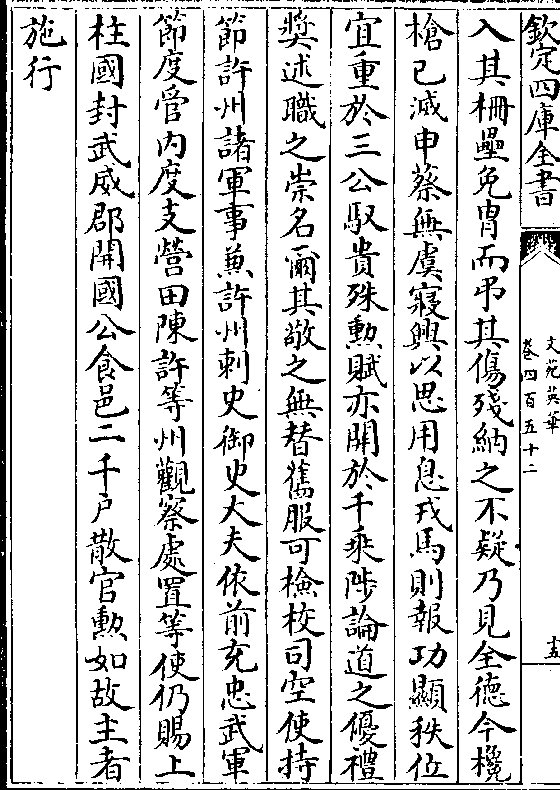 欽定四庫全書
文苑英華
卷四百五十二
十五
入其柵壘免胄而弔其傷殘納之不疑乃見全德今欃
槍已滅申蔡無虞寢興以思用息戎馬則報功顯秩位
宜重於三公馭貴殊勲賦亦開於千乘陟論道之優禮
奬述職之崇名爾其敬之無替舊服可檢校司空使持
節許州諸軍事兼許州刺史御史大夫依前充忠武軍
節度管内度支營田陳許等州觀察處置等使仍賜上
柱國封武威郡開國公食邑二千户散官勲如故主者
施行